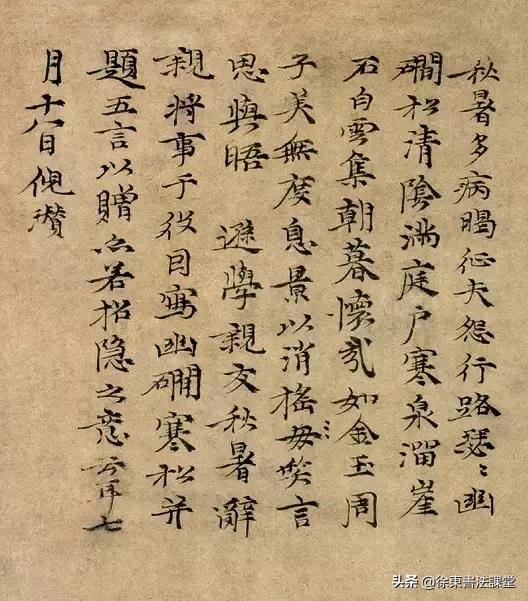 秋暑多病暍征夫怨行路瑟〻幽
磵松清陰滿庭户寒泉溜崖
石白雲集朝暮懷哉如金玉周
子美無度息景以消搖毋笑言
思與晤 遜學親友秋暑辭
親將事于役因寫幽磵寒松并
題五言以贈亦若招隱之意云耳七
月十八日倪瓚
头条 @徐東書法課堂